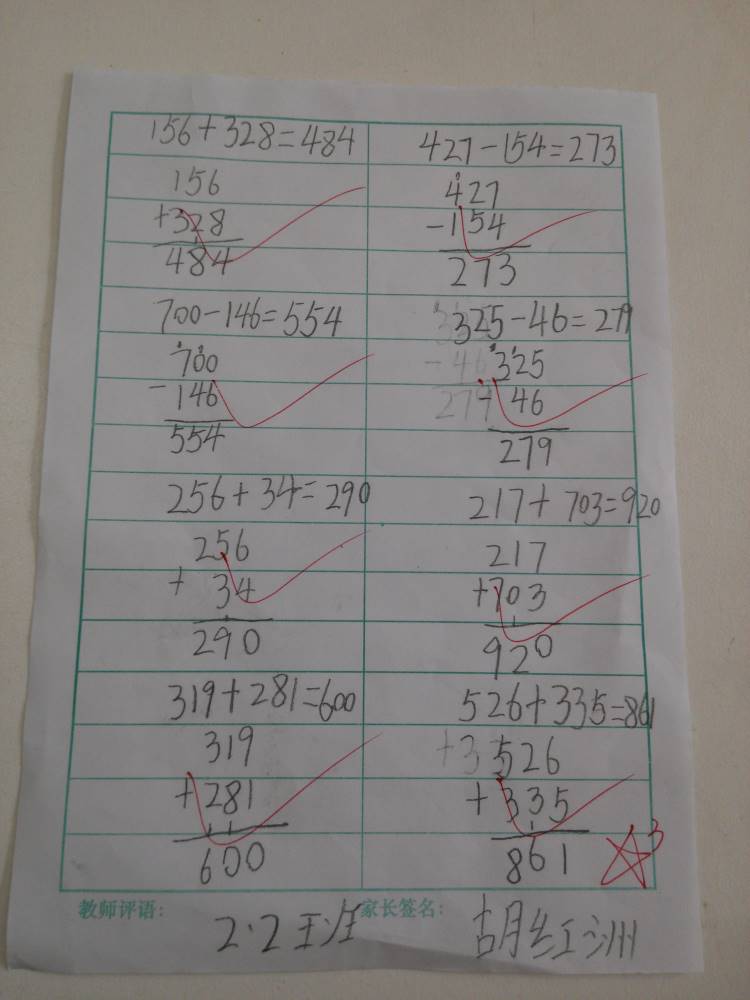 156+328=484
156
+328
484
427-154=273
427
-154
273
700-146=554
700
-146
554
325-46=279
325
-46
279
256+34=290
256
+34
290
217+703=920
217
+703
920
319+281=600
319
+281
600
526+335=861
526
+335
861
3
教师评语: 2.2班 家长签名: 胡红洲